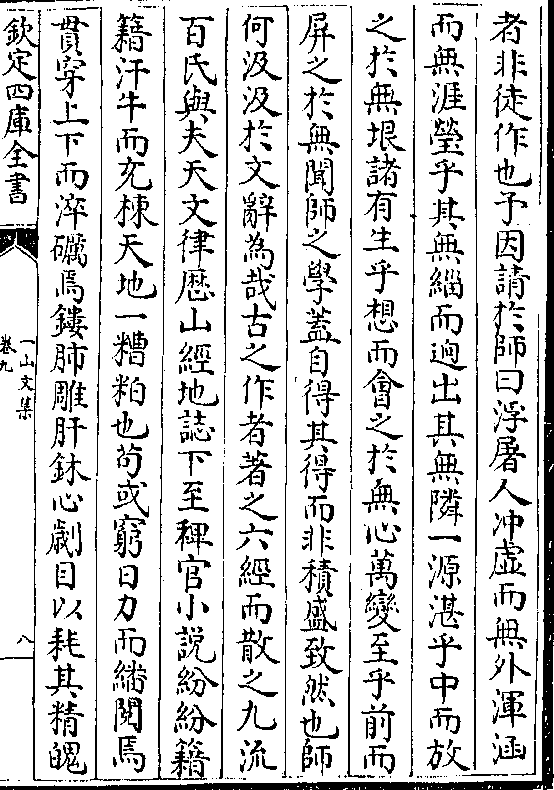 者非徒作也予因請於師曰浮屠人冲虚而無外渾涵
而無涯瑩乎其無緇而逈出其無隣一源湛乎中而放
之於無垠諸有生乎想而會之於無心萬變至乎前而
屏之於無聞師之學蓋自得其得而非積盛致然也師
何汲汲於文辭為哉古之作者著之六經而散之九流
百氏與夫天文律歴山經地誌下至稗官小説紛紛籍
籍汗牛而充棟天地一糟粕也苟或窮日力而繙閲焉
貫穿上下而淬礪焉鏤肺雕肝鉥心劌目以耗其精魄
欽定四庫全書
一山文集
卷九
八